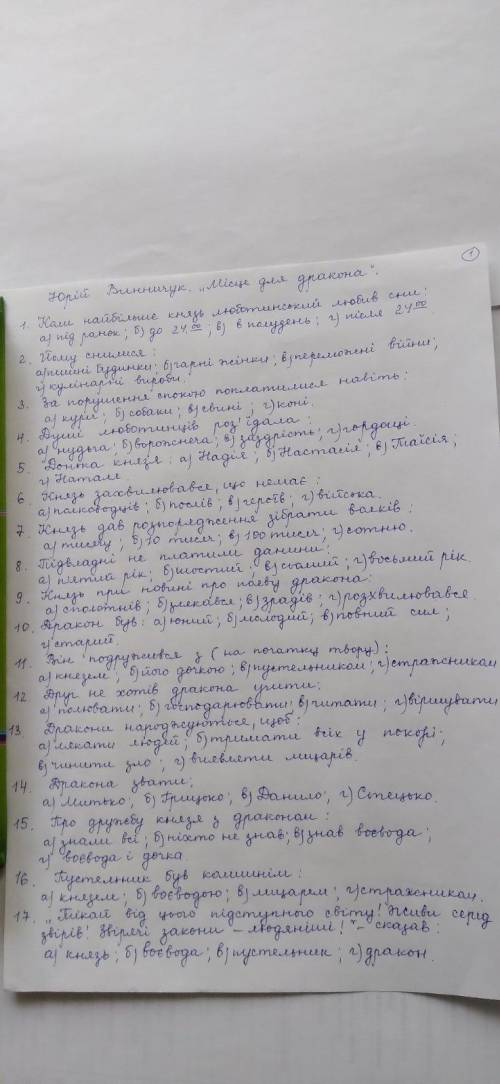 1
Юрій Винничук. „Місце для дракона".
1. Найбільше князь люботинський любив сни:
а) під ранок; б) до 24.00; в) в полудень; г) після 24.00
2. Йому снилися:
а) пишні будинки; б) гарні жінки; в) переможні війни;
г) кулінарні вироби.
3. За порушення спокою поплатилися навіть:
а) кури; б) собаки; в) свині; г) коні.
4. Душі люботинців роз'їдала:
а) нудьга; б) ворожнеча; в) заздрість; г) гордощі.
5. Донька князя: а) Надія; б) Настасія; в) Таїсія;
г) Наталя.
6. Князь захвилювався, що немає:
а) полководців; б) послів; в) героїв; г) війська.
7. Князь дав розпорядження зібрати вояків:
а) тисячу; б) 10 тисяч; в) 100 тисяч; г) сотню.
8. Підвладні не платили данини:
а) п'ятий рік; б) шостий; в) сьомий; г) восьмий рік.
9. Князь при новині про появу дракона:
а) сполотнів; б) злякався; в) зрадів; г) розхвилювався.
10. Дракон був: а) юний; б) молодий; в) повний сил;
г) старий.
11. Він подружився з (на початку твору):
а) князем; б) його дочкою; в) пустельником; г) стражником
12. Друг не хотів дракона учити:
а) полювати; б) господарювати; в) читати; г) віршувати
13. Дракони народжуються, щоб:
а) лякати людей; б) тримати всіх у покорі;
в) чинити зло; г) виявляти лицарів.
14. Дракона звати:
а) Митько; б) Грицько; в) Данило; г) Стецько.
15. Про дружбу князя з драконом:
а) знали всі; б) ніхто не знав; в) знав воєвода;
г) воєвода і дочка.
16. Пустельник був колишнім:
а) князем; б) воєводою; в) лицарем; г) стражником.
17. „Тікай від цього підступного світу! Живи серед
звірів! Звірячі закони – людяніші!" – сказав:
а) князь; б) воєвода; в) пустельник; г) дракон.